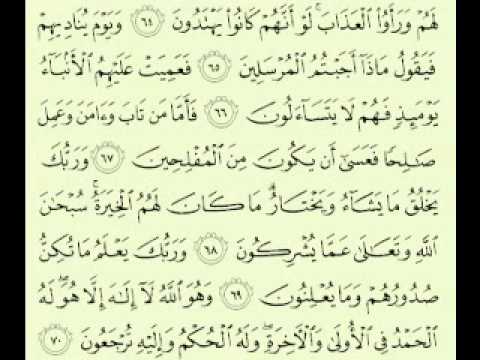 لَهُمْ وَرَأَوُا۟ ٱلْعَذَابَ ۚ لَوْ أَنَّهُمْ كَانُوا۟ يَهْتَدُونَ ٦٤ وَيَوْمَ يُنَادِيهِمْ
فَيَقُولُ مَاذَآ أَجَبْتُمُ ٱلْمُرْسَلِينَ ٦٥ فَعَمِيَتْ عَلَيْهِمُ ٱلْأَنۢبَآءُ
يَوْمَئِذٍ فَهُمْ لَا يَتَسَآءَلُونَ ٦٦ فَأَمَّا مَن تَابَ وَءَامَنَ وَعَمِلَ
صَـٰلِحًا فَعَسَىٰٓ أَن يَكُونَ مِنَ ٱلْمُفْلِحِينَ ٦٧ وَرَبُّكَ
يَخْلُقُ مَا يَشَآءُ وَيَخْتَارُ ۗ مَا كَانَ لَهُمُ ٱلْخِيَرَةُ ۚ سُبْحَـٰنَ
ٱللَّهِ وَتَعَـٰلَىٰ عَمَّا يُشْرِكُونَ ٦٨ وَرَبُّكَ يَعْلَمُ مَا تُكِنُّ
صُدُورُهُمْ وَمَا يُعْلِنُونَ ٦٩ وَهُوَ ٱللَّهُ لَآ إِلَـٰهَ إِلَّا هُوَ ۖ لَهُ
ٱلْحَمْدُ فِى ٱلْأُولَىٰ وَٱلْـَٔاخِرَةِ ۖ وَلَهُ ٱلْحُكْمُ وَإِلَيْهِ تُرْجَعُونَ ٧٠